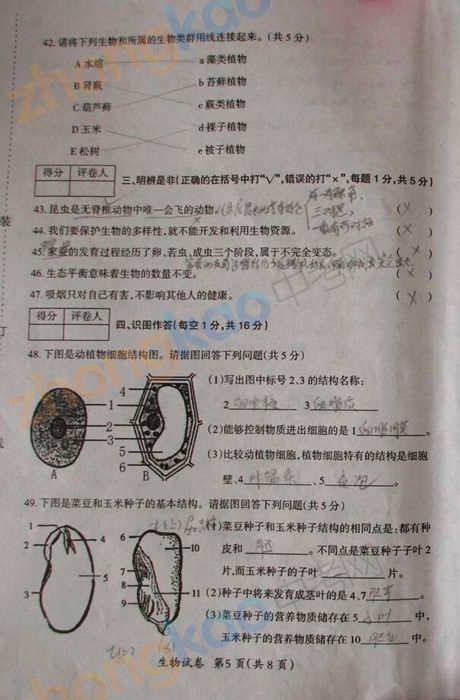 42.请将下列生物和所属的生物类群用线连接起来。(共5分)
A水绵 a藻类植物
B肾蕨 b苔藓植物
C葫芦藓 c蕨类植物
D玉米 d裸子植物
E松树 e被子植物
得分 评卷人
三、明辨是非(正确的在括号中打“√”,错误的打“×”,每题1分,共5分)
43.昆虫是无脊椎动物中唯一会飞的动物。 (×)
44.我们要保护生物的多样性,就不能开发和利用生物资源。 (×)
45.家蚕的发育过程经历了卵、若虫、成虫三个阶段,属于不完全变态。 (×)
46.生态平衡意味着生物的数量不变。 (×)
47.吸烟只对自己有害,不影响其他人的健康。 (×)
得分 评卷人
四、识图作答(每空1分,共16分)
48.下图是动植物细胞结构图。请据图回答下列问题(共5分)
(1)写出图中标号2、3的结构名称:
2 细胞核 3 细胞质
(2)能够控制物质进出细胞的是1 细胞膜。
(3)比较动植物细胞,植物细胞特有的结构是细胞
壁、4 叶绿体、5 液泡。
4
1
2
3
5
6
A B
49.下图是菜豆和玉米种子的基本结构。请据图回答下列问题(共5分)
(1)菜豆种子和玉米种子结构的相同点是:都有种
皮和 胚。不同点是菜豆种子子叶2
片,而玉米种子的子叶 片。
(2)种子中将来发育成茎叶的是4、7 胚芽。
(3)菜豆种子的营养物质储存在5 子叶 中,
玉米种子的营养物质储存在10 胚乳 中。
1
2
3
4
5
6
7
8
9
10
11
生物试卷 第5页(共8页)
装
订
线
zhongkao
中考网